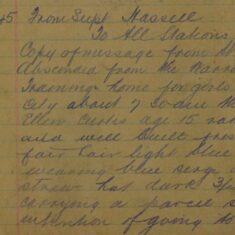 45 From Supt Hassell
To All Stations
Copy of message from
Absconded from the
Training home for girls
City about 7 30 am
Ellen Curtis age 15
and well built fresh
fair hair light blue
wearing blue serge
straw hat dark 3/4
carrying a parcel
intention of going to